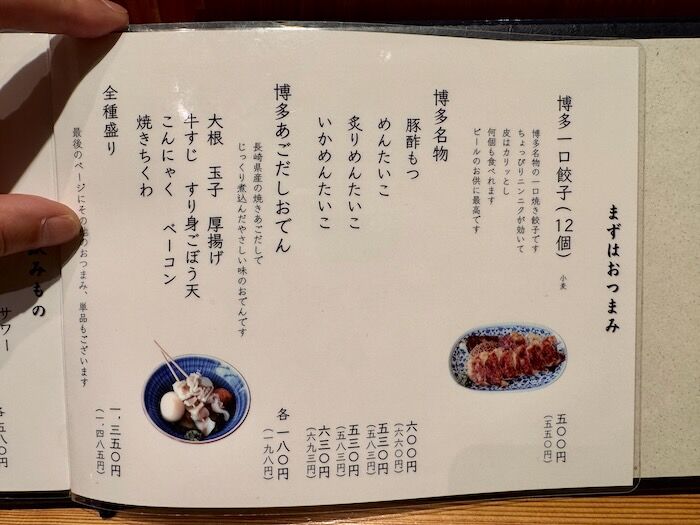 まずはおつまみ
博多一口餃子(12個)
小麦
五〇〇円
(五五〇円)
博多名物の一口焼き餃子です
ちょっぴりニンニクが効いて
皮はカリッとし
何個も食べれます
ビールのお供に最高です
博多名物
豚酢もつ
六〇〇円
(六六〇円)
めんたいこ
五三〇円
(五八三円)
炙りめんたいこ
五三〇円
(五八三円)
いかめんたいこ
六三〇円
(六九三円)
博多あごだしおでん
各一八〇円
(一九八円)
長崎県産の焼きあごだしで
じっくり煮込んだやさしい味のおでんです
大根 玉子 厚揚げ
牛すじ すり身ごぼう天
こんにゃく ベーコン
焼きちくわ
全種盛り
一,三五〇円
(一,四八五円)
最後のページにその他のおつまみ、単品もございます
飲みもの
サワー
各五八〇円